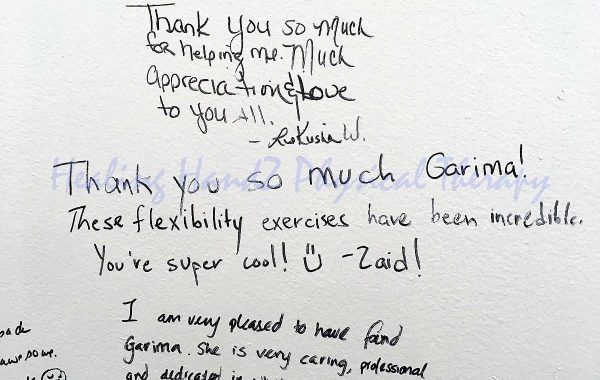 Thank you so Much
for helping me. Much
appreciation & Love
to you all.
W.
Healing Handz Physical Therapy
Thank you so much Garima!
These flexibility exercises have been incredible.
You're super cool! -Zaid!
I am very pleased to have found
Garima. She is very caring, professional
and dedicated in
awesome.